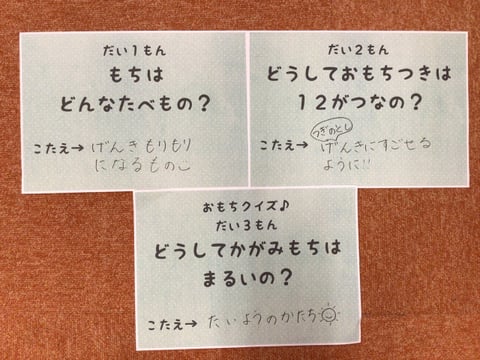 だい1もん
もちは
どんなたべもの？
こたえ→げんきもりもり
になるもの
だい2もん
どうしておもちつきは
12がつなの？
つぎのとし
こたえ→げんきにすごせる
ように!!
おもちクイズ♪
だい3もん
どうしてかがみもちは
まるいの？
こたえ→たいようのかたち